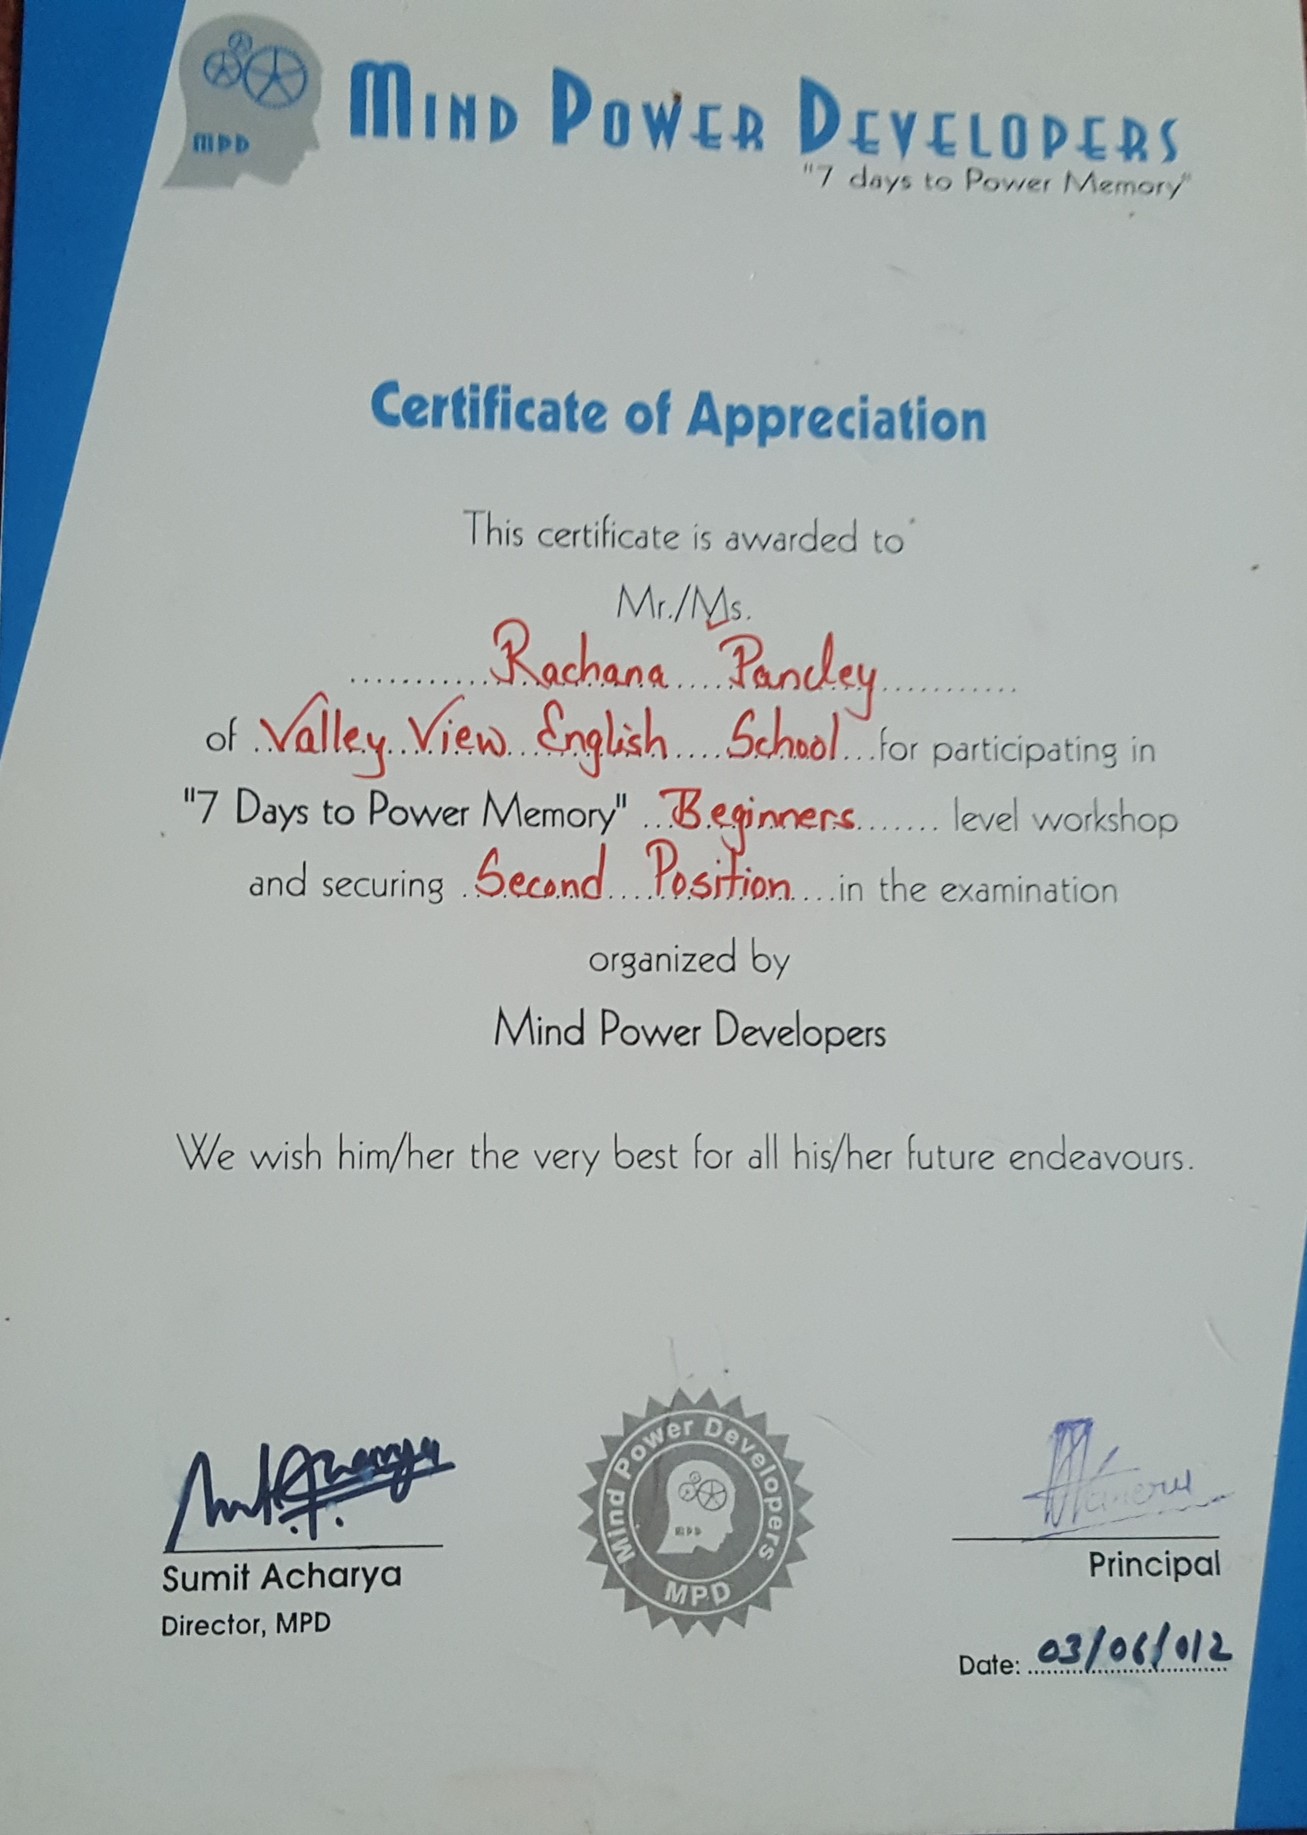 MPD
MIND POWER DEVELOPERS
"7 days to Power Memory"
Certificate of Appreciation
This certificate is awarded to
Mr./Ms.
..........Rachana....Pandey...........
of .Valley..View..English....School...for participating in
"7 Days to Power Memory" ..Beginners....... level workshop
and securing .Second...Position....in the examination
organized by
Mind Power Developers
We wish him/her the very best for all his/her future endeavours.
Mind Power Developers
MPD
MPD
Sumit Acharya
Director, MPD
Principal
Date: 03/06/012